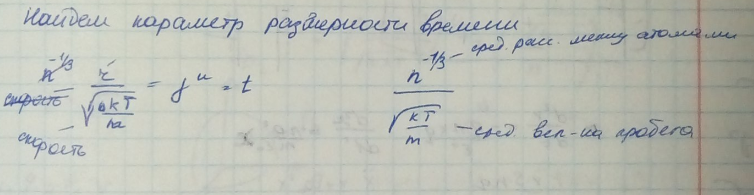 Найдем параметр размерности времени
n^{-1/3} / скорость
r / √(kT/m) = f^u = t
скорость
n^{-1/3} – сред. расс. между атомами
√(kT/m) – сред. вел-на пробега